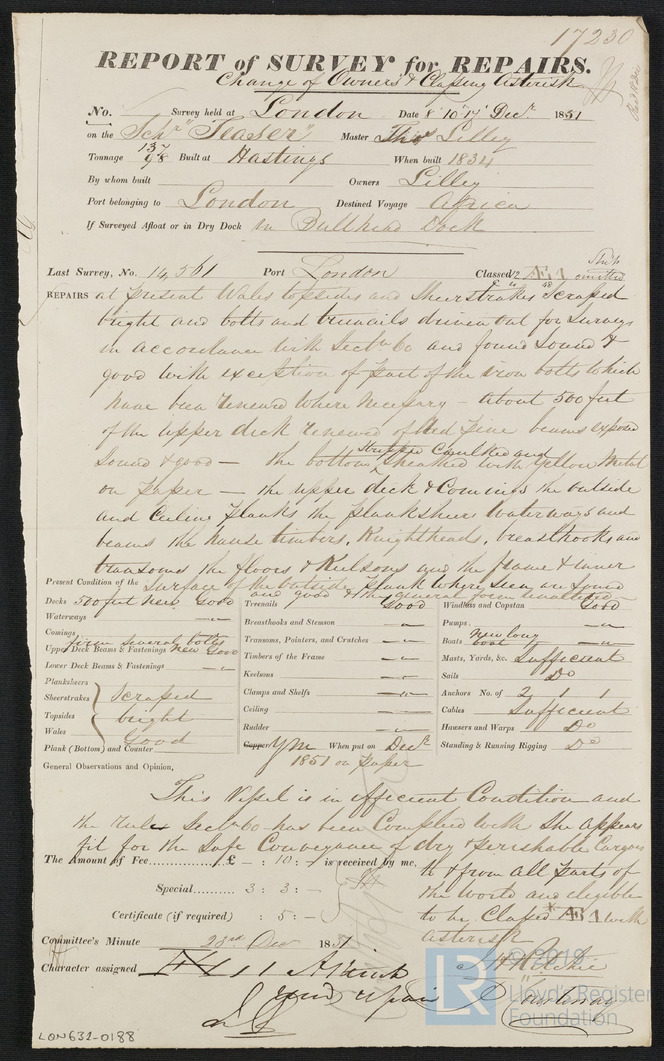 17230
REPORT of SURVEY for REPAIRS.
Change of Owners & Classing Asterisk
No. Survey held at London Date 8 10 17 Decr. 1851
on the Schr "Teaser" Master Thos Lilley
Tonnage 137 98 Built at Hastings When built 1834
By whom built Owners Lilley
Port belonging to London Destined Voyage Africa
If Surveyed Afloat or in Dry Dock in Bullhead Dock
Last Survey, No. 14,561 Port London Classed 12 Æ1 omitted
REPAIRS at present Wales topsides and Sheerstrakes Scraped
bright and bolts and treenails driven out for Survey
in accordance with Sectn 60 and found Sound &
good with exception of part of the iron bolts which
have been renewed where necessary – about 500 feet
of the upper deck renewed of Red Pine beams exposed
Sound & good – the bottom Stripped Caulked and Sheathed with Yellow Metal
on paper – the upper deck & Comings the outside
and Ceiling planks the planksheers Waterways and
beams the hawse timbers, Knightheads, breasthooks and
transoms the floors & Keelsons and the frame & inner
Surface of the outside plank where seen are Sound
and good & the general form unaltered
Present Condition of the
Decks 500 feet new Good
Waterways
Comings
Upper Deck Beams & Fastenings new Good
Lower Deck Beams & Fastenings
Planksheers
Sheerstrakes Scraped
Topsides bright
Wales Good
Plank (Bottom) and Counter
Treenails Good
Breasthooks and Stemson
Transoms, Pointers, and Crutches
Timbers of the Frame
Keelsons
Clamps and Shelfs
Ceiling
Rudder
Copper YM When put on Decr.
1851 on paper
Windlass and Capstan Good
Pumps
Boats New long boat
Masts, Yards, &c. Sufficient
Sails Do
Anchors No. of 2 1 1
Cables Sufficient
Hawsers and Warps Do
Standing & Running Rigging Do
General Observations and Opinion,
This Vessel is in efficient Condition and
the rule Sectn 60 has been Complied with She appears
fit for the Safe Conveyance of dry & perishable Cargoes
to & from all parts of
the World and eligible
to be Classed * Æ1 with
asterisk
The Amount of Fee £ – : 10 : – is received by me,
Special 3 : 3 : –
Certificate (if required) : 5 : –
Committee's Minute 23rd Dec 1851
Character assigned
J H Ritchie
Courtenay
LON631-0188
© 2019
LR
Lloyd's Register
Foundation